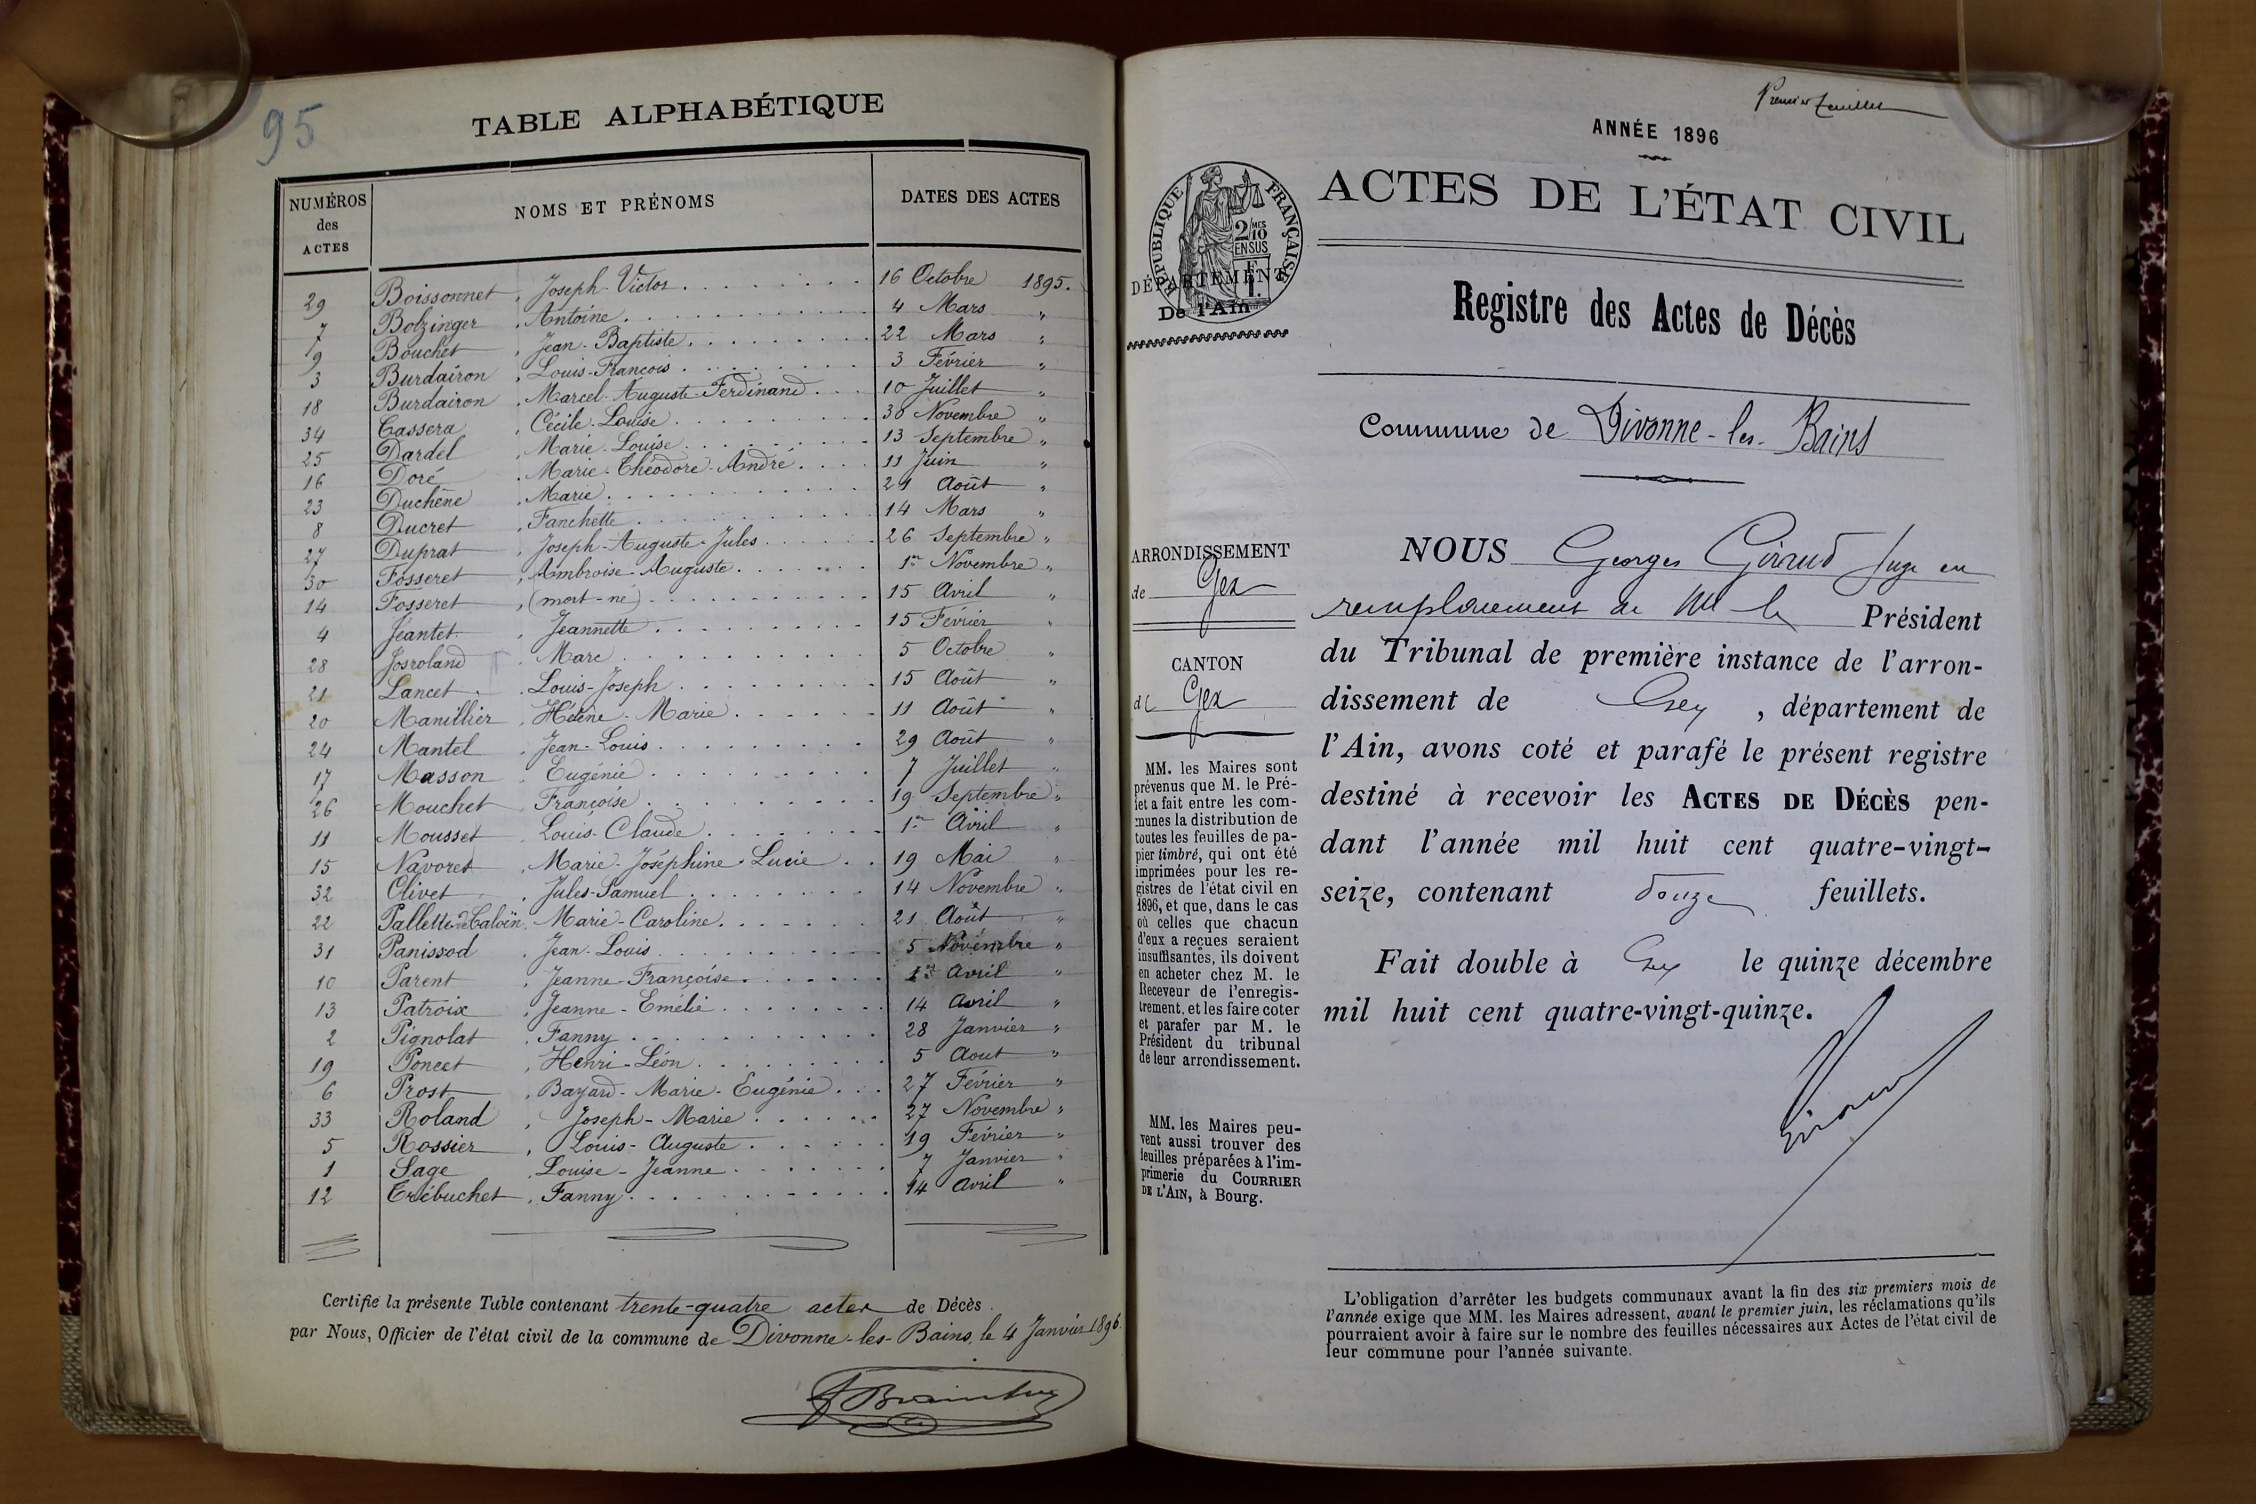 95
TABLE ALPHABÉTIQUE
NUMÉROS des ACTES
NOMS ET PRÉNOMS
DATES DES ACTES
29 Boissonnet, Joseph-Victor 16 Octobre 1895.
7 Bolzinger, Antoine 4 Mars "
9 Bouchet, Jean-Baptiste 22 Mars "
3 Burdairon, Louis-François 3 Février "
18 Burdairon, Marcel-Auguste-Ferdinand 10 Juillet "
34 Cassera, Cécile-Louise 30 Novembre "
25 Dardel, Marie-Louise 13 Septembre "
16 Doré, Marie-Théodore-André 11 Juin "
23 Duchêne, Marie 21 Août "
8 Ducret, Fanchette 14 Mars "
27 Duprat, Joseph-Auguste-Jules 26 Septembre "
30 Fosseret, Ambroise-Auguste 1er Novembre "
14 Fosseret, (mort-né) 15 Avril "
4 Jeantet, Jeannette 15 Février "
28 Josroland, Marc 5 Octobre "
21 Lancet, Louis-Joseph 15 Août "
20 Manillier, Hélène-Marie 11 Août "
24 Mantel, Jean-Louis 29 Août "
17 Masson, Eugénie 7 Juillet "
26 Mouchet, Françoise 19 Septembre "
11 Mousset, Louis-Claude 1er Avril "
15 Navoret, Marie-Joséphine-Lucie 19 Mai "
32 Olivet, Jules-Samuel 14 Novembre "
22 Marie-Caroline 21 Août "
31 Panissod, Jean-Louis 5 Novembre "
10 Parent, Jeanne-Françoise 1er Avril "
13 Patroix, Jeanne-Emélie 14 Avril "
2 Pignolat, Fanny 28 Janvier "
19 Poncet, Henri-Léon 5 Aout "
6 Prost, Bayard-Marie-Eugénie 27 Février "
33 Roland, Joseph-Marie 27 Novembre "
5 Rossier, Louis-Auguste 19 Février "
1 Sage, Louise-Jeanne 7 Janvier "
12 Trébuchet, Fanny 14 Avril "
Certifié la présente Table contenant trente-quatre actes de Décès
par Nous, Officier de l'état civil de la commune de Divonne-les-Bains, le 4 Janvier 1896.
Premier feuillet
ANNÉE 1896
ACTES DE L'ÉTAT CIVIL
RÉPUBLIQUE FRANÇAISE
2/10 MES
EN SUS
DÉPARTEMENT
De l'Ain
Registre des Actes de Décès
Commune de Divonne-les-Bains
ARRONDISSEMENT
de Gex
CANTON
de Gex
MM. les Maires sont
prévenus que M. le Pré-
fet a fait entre les com-
munes la distribution de
toutes les feuilles de pa-
pier timbré, qui ont été
imprimées pour les re-
gistres de l'état civil en
1896, et que, dans le cas
où celles que chacun
d'eux a reçues seraient
insuffisantes, ils doivent
en acheter chez M. le
Receveur de l'enregis-
trement, et les faire coter
et parafer par M. le
Président du tribunal
de leur arrondissement.
MM. les Maires peu-
vent aussi trouver des
feuilles préparées à l'im-
primerie du COURRIER
DE L'AIN, à Bourg.
NOUS Georges Giraud Juge en
remplacement de M le Président
du Tribunal de première instance de l'arron-
dissement de Gex, département de
l'Ain, avons coté et parafé le présent registre
destiné à recevoir les ACTES DE DÉCÈS pen-
dant l'année mil huit cent quatre-vingt-
seize, contenant douze feuillets.
Fait double à Gex le quinze décembre
mil huit cent quatre-vingt-quinze.
L'obligation d'arrêter les budgets communaux avant la fin des six premiers mois de
l'année exige que MM. les Maires adressent, avant le premier juin, les réclamations qu'ils
pourraient avoir à faire sur le nombre des feuilles nécessaires aux Actes de l'état civil de
leur commune pour l'année suivante.